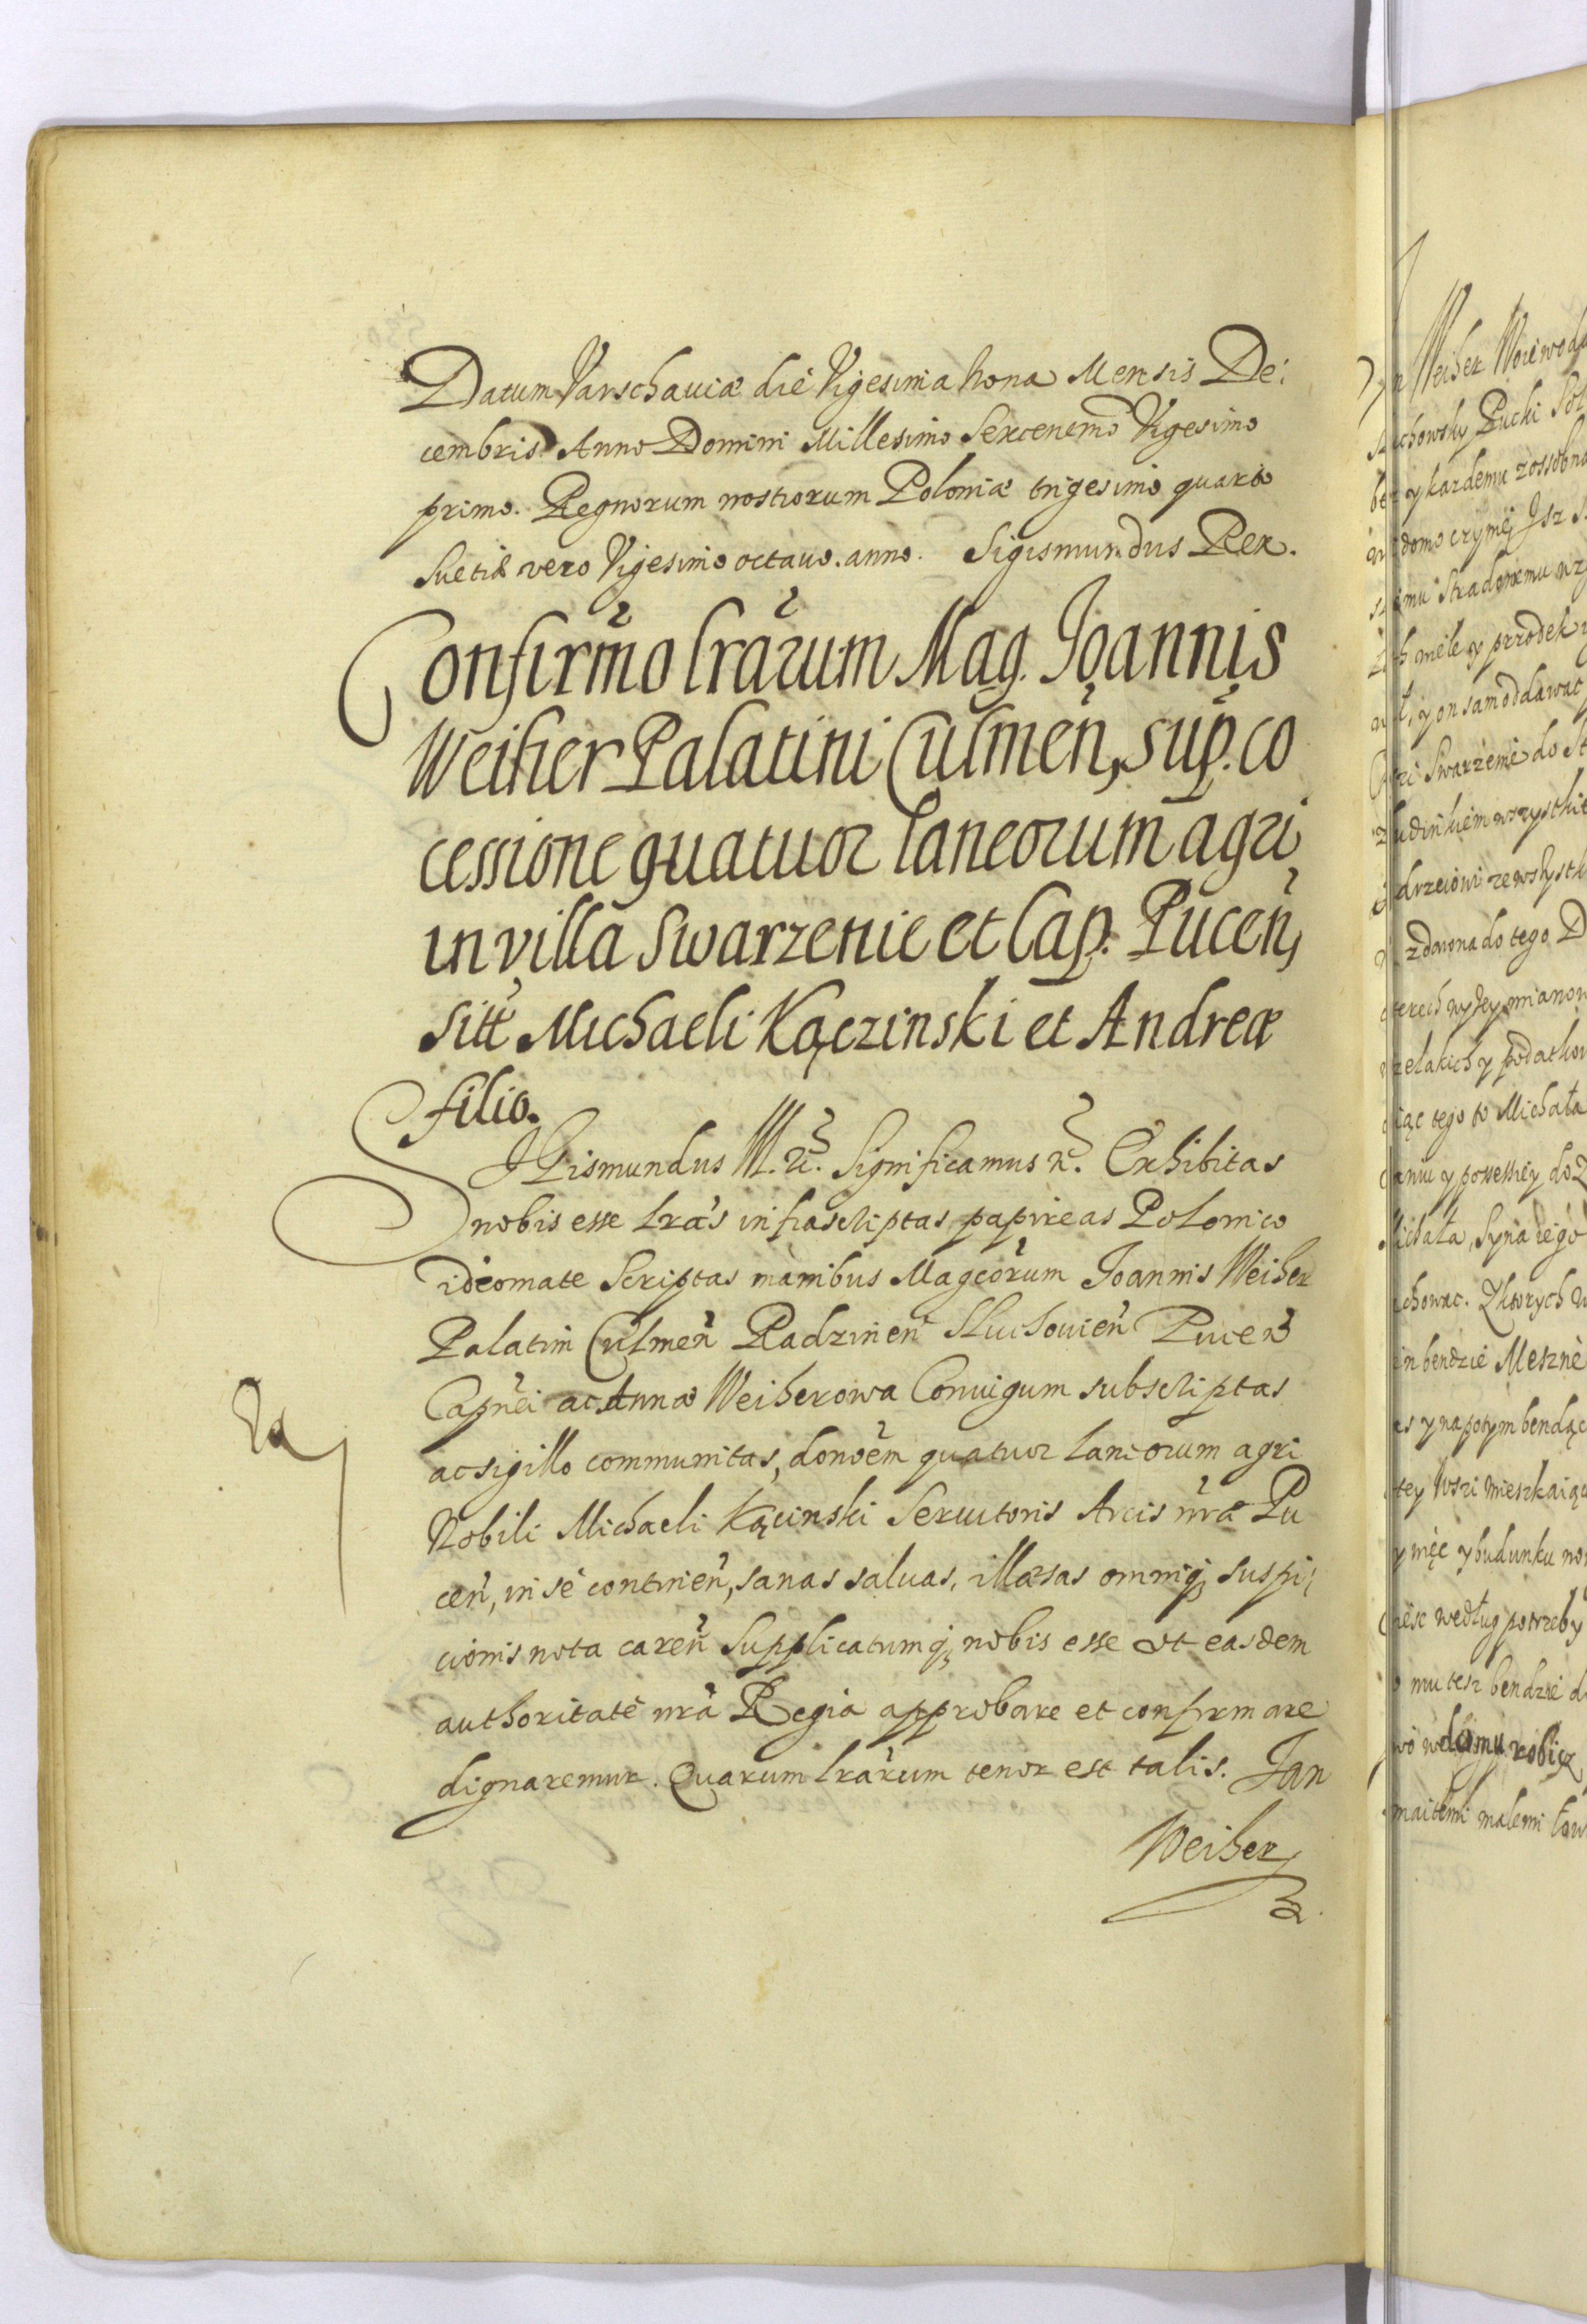 Datum Varschauiæ die Vigesima Nona Mensis De:
cembris Anno Domini Millesimo Sexcentmo Vigesimo
primo. Regnorum nostrorum Poloniæ trigesimo quarto
Suetiæ vero Vigesimo octauo. anno. Sigismundus Rex.
Confirmo lrarum Mag. Joannis
Weiher Palatini Culmen, sup. co
cessione quatuor laneorum agri
in villa Swarzenie et Cap. Pucen,
sitt Michaeli Kączinski et Andreæ
filio.
SIGismundus III. etc. Significamus etc. Exhibitas
nobis esse lras infrascriptas papireas Polonico
ideomate Scriptas manibus Magcorum Joannis Weiher
Palatini Culmen Radzinen Sluchouien Pucen
Capnei ac Annæ Weiherowa Coniugum subscriptas
ac sigillo communitas, donoem quatuor laneorum agri
Nobili Michaeli Kącinski Seruitoris Arcis nræ Pu
cen, in se continen, sanas saluas, illæsas omniq suspi:
cionis nota caren Supplicatumq nobis esse ut easdem
authoritate nra Regia approbare et confirmare
dignaremur. Quarum lrarum tenor est talis. Jan
Weiher
Weiher Woiewoda
Pucki
y kazdemu zossobna
mele y przodek
y on sam oddawac
Swarzenie do
zdawna do tego D
tego to Michała
Michała, Syna iego
Zktorych
bendzie Meszne
y napotym bendąc
tey Wsi mieszkaiąc
y budunku
według potrzeby
mu tesz bendzie
domu robic
malemi